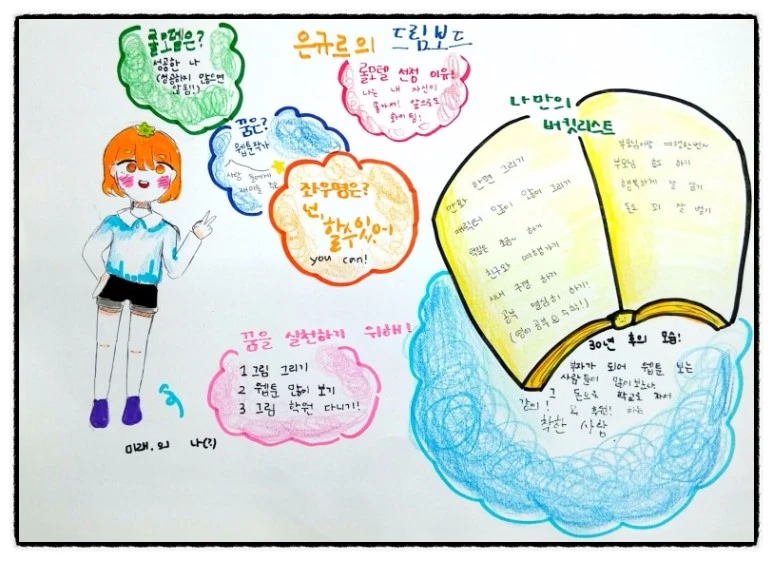 은규르의 드림보드
롤모델은?
성공한 나
(성공하지 않으면
않됨!!)
롤모델 선정 이유!
나는 내 자신이
좋아여! 앞으로도
화이팅!
꿈은?
웹툰작가
사람들에게
재미를
좌우명은?
넌,
할수있어
you can!
꿈을 실천하기 위해!
1 그림 그리기
2 웹툰 많이 보기
3 그림 학원 다니기!
미래.의 나(?)
나만의
버킷리스트
만화 한편 그리기
캐릭터 많이 많이 그리기
덕질은 조금~ 하기
친구와 여행가기
시내 구경 하기
공부 열심히 하기!
(영어 공부 수학!)
부모님이랑 여행한번~
부모님 효도 하기
행복하게 잘 살기
돈도 꽤 잘 벌기
30년 후의 모습!
부자가 되어 웹툰 보는
사람들이 많이보느냐
그 돈으로 학교로 가서
강의! 후원! 하는
착한 사람